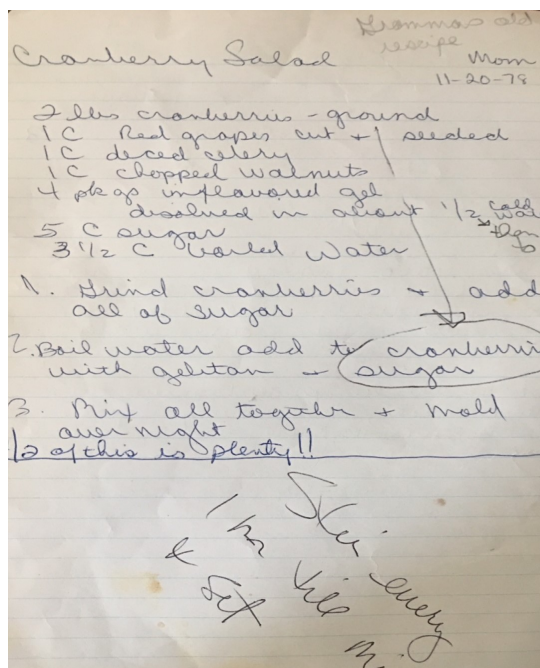 Grammas old
recipe
Cranberry Salad
Mom
11-20-78
2 lbs cranberries - ground
1 C Red grapes cut + seeded
1 C diced celery
1 C chopped walnuts
4 pkgs unflavored gel
disolved in about 1/2 cold
5 C sugar
3 1/2 C boiled Water
1. Grind cranberries + add
all of sugar
2. Boil water add to cranberri
with geletan + sugar
3. Mix all together + mold
over night
1/2 of this is plenty!!
Stir every
1 hr till
+ Set